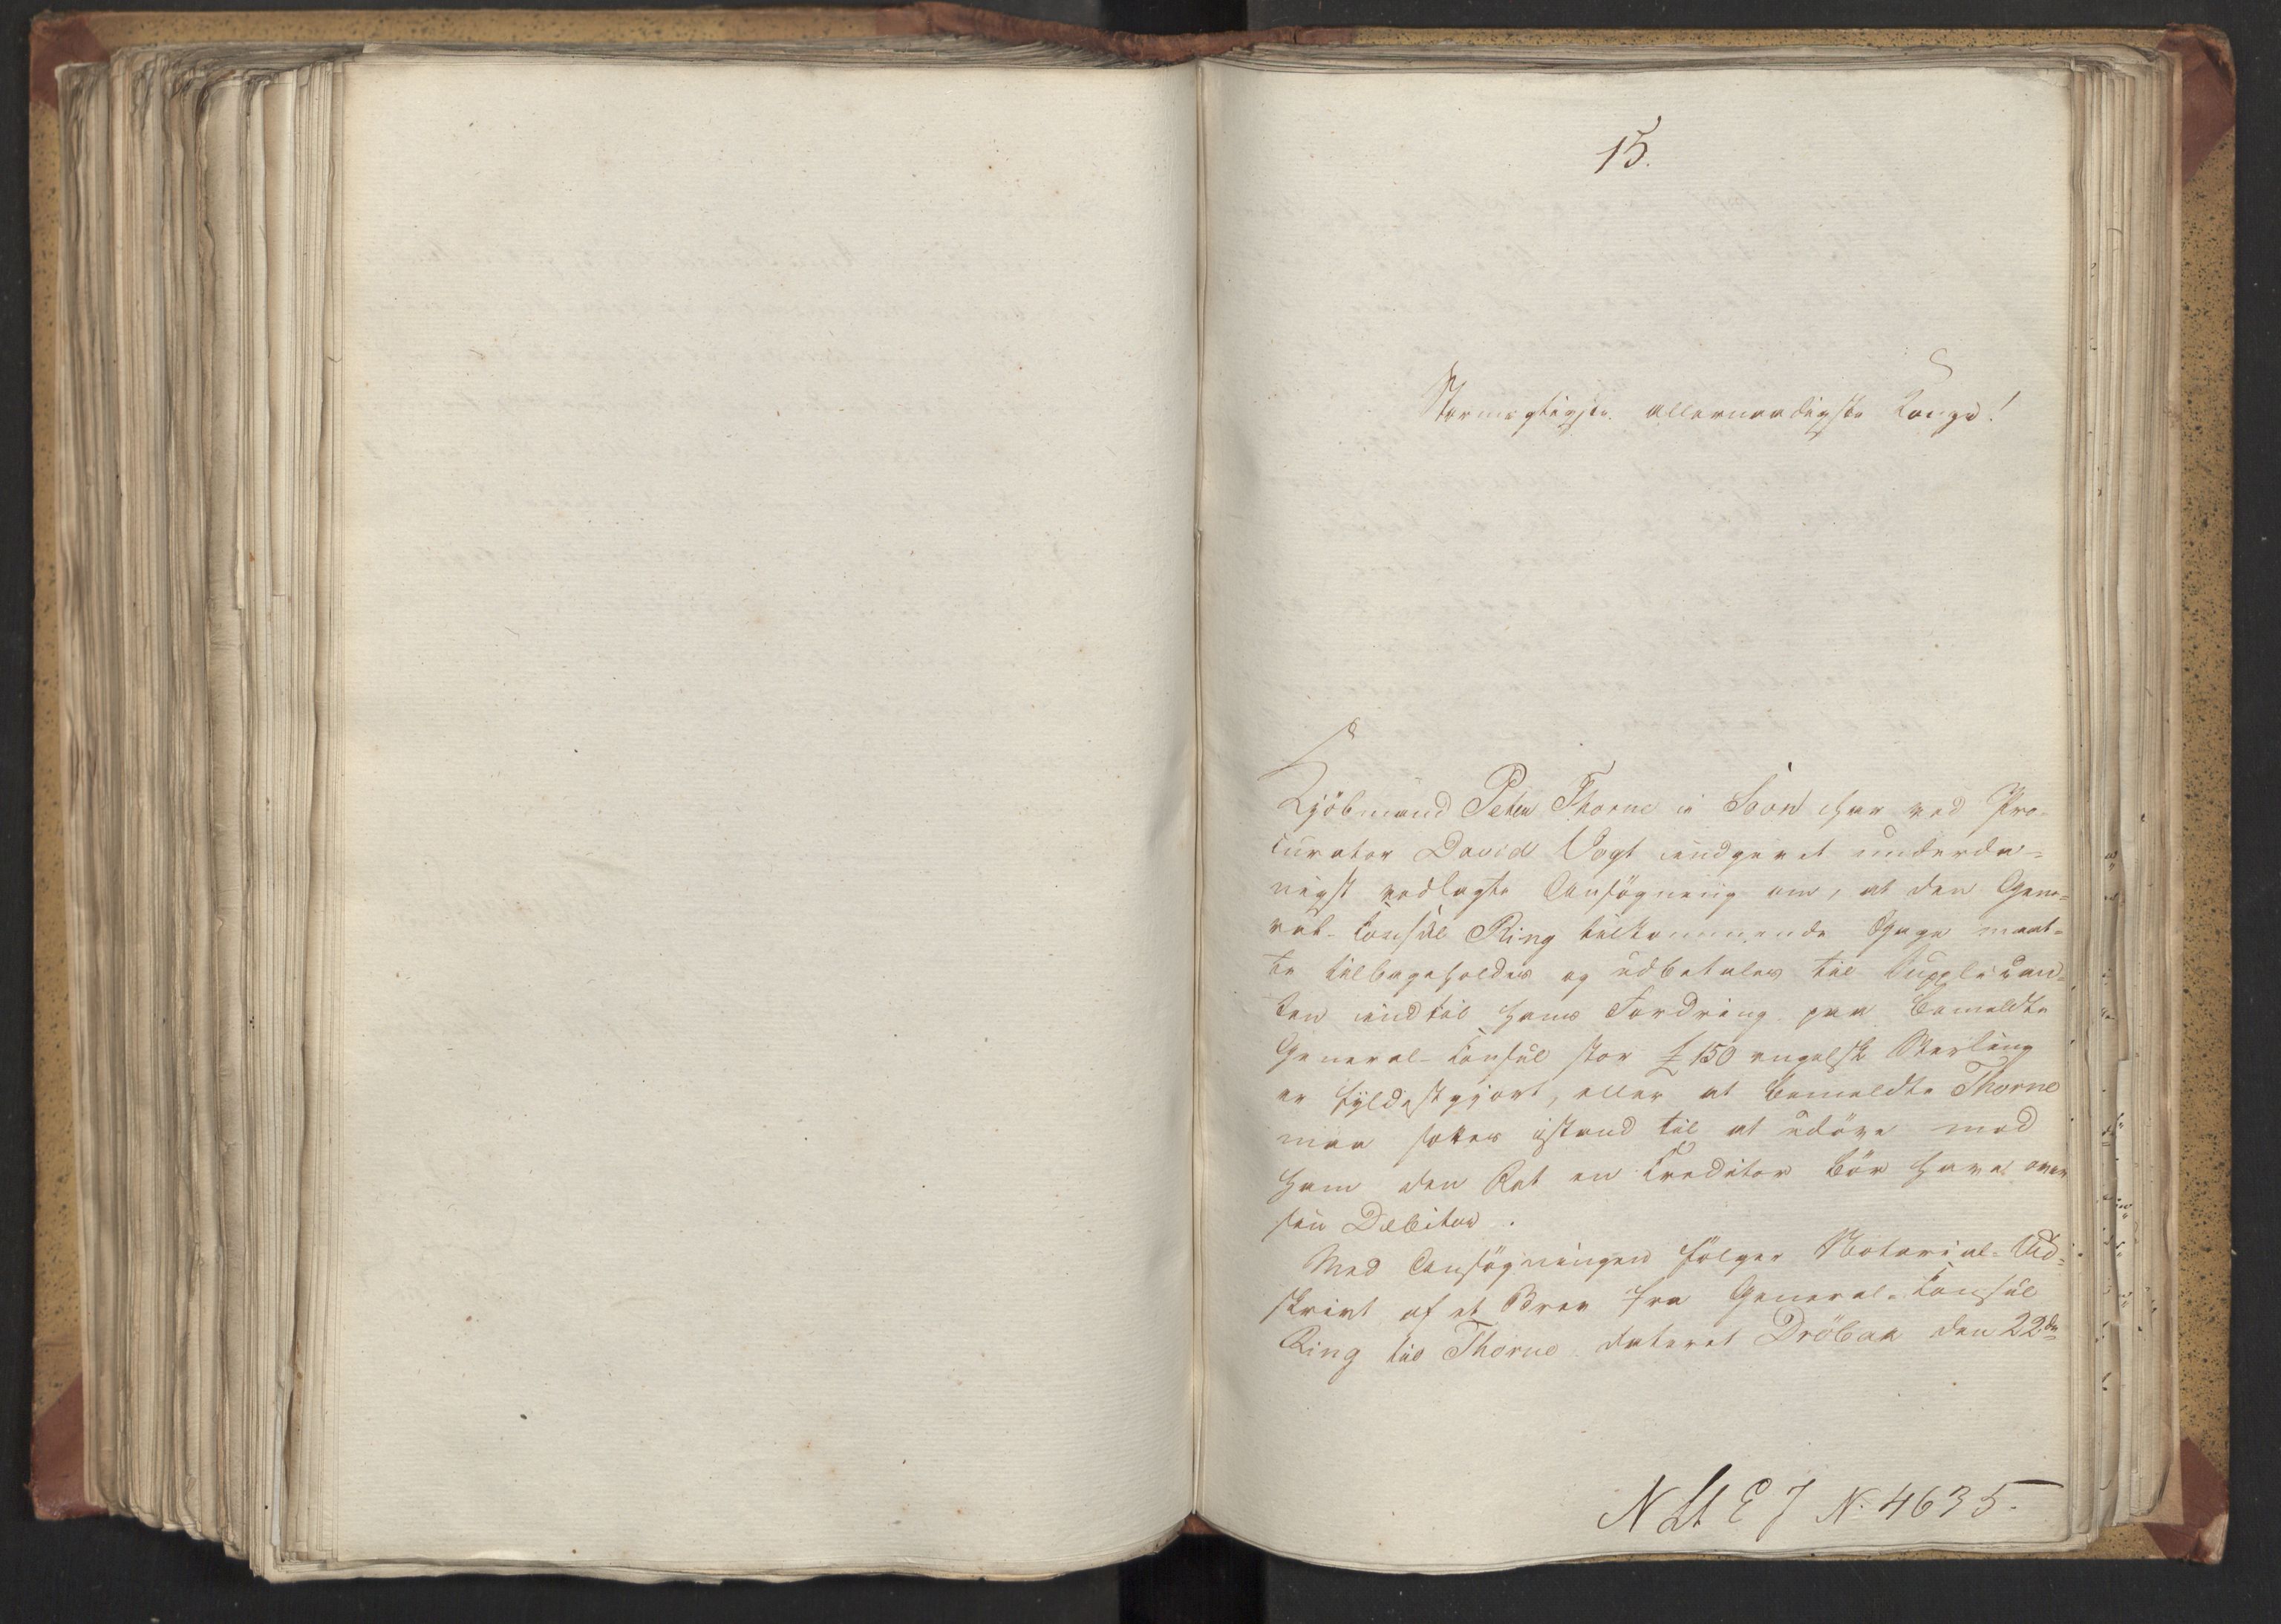 15.
Stormægtigste allernaadigste Konge!
Kjöbmand Peter Thorne i Soon har ved Pro-
curator David Vogt indgivet underda=
nigst vedlagte Ansögning om, at den Gene=
ral-Consul Ring tilkommende Gage maat=
te tilbageholdes og udbetales til Supplican=
ten indtil hans Fordring paa bemeldte
General-Consul stor £ 150 engelsk Sterling
er fyldestgjort, eller at bemeldte Thorne
maa sættes istand til at udöve mod
ham den Ret en Creditor bör have over
sin Debitor.
Med Ansögningen fölger Notarial-Ud=
skrivt af et Brev fra General-Consul
Ring til Thorne dateret Dröbak den 22de
N Lt E J N. 4635.